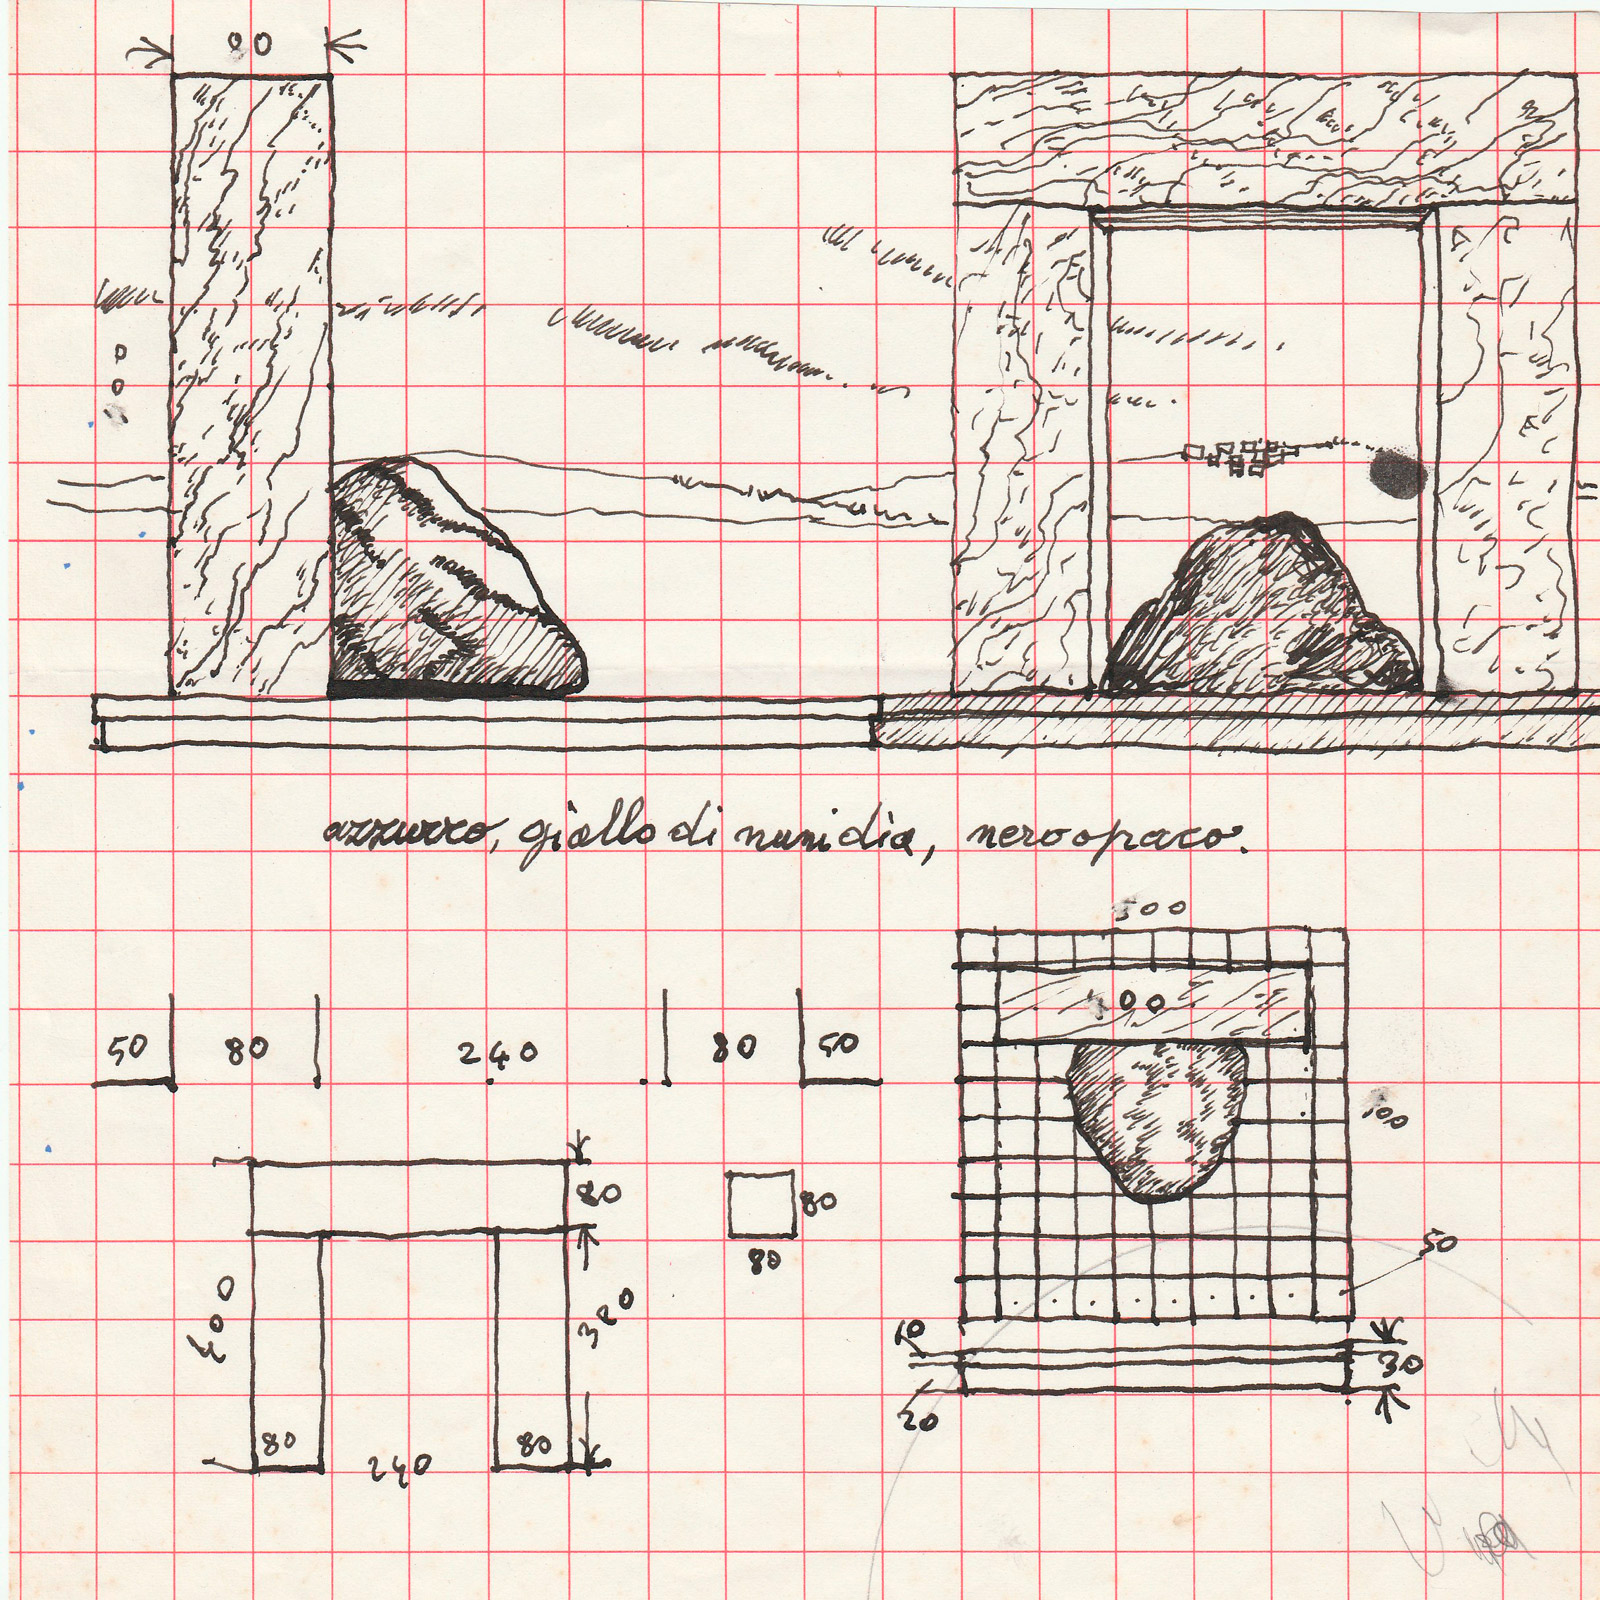 80
azzurro, giallo di numidia, nero opaco.
500
400
50 80 240 80 50
80
80
80
400
380
80 240 80
50
10
30
20